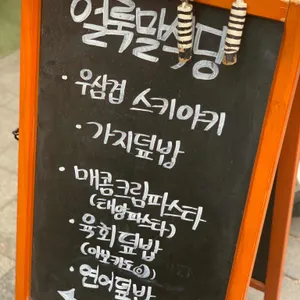 얼룩말식당
· 우삼겹 스키야키
· 가지덮밥
· 매콤크림파스타
(태양파스타)
· 육회덮밥
(아보카도)
· 연어덮밥